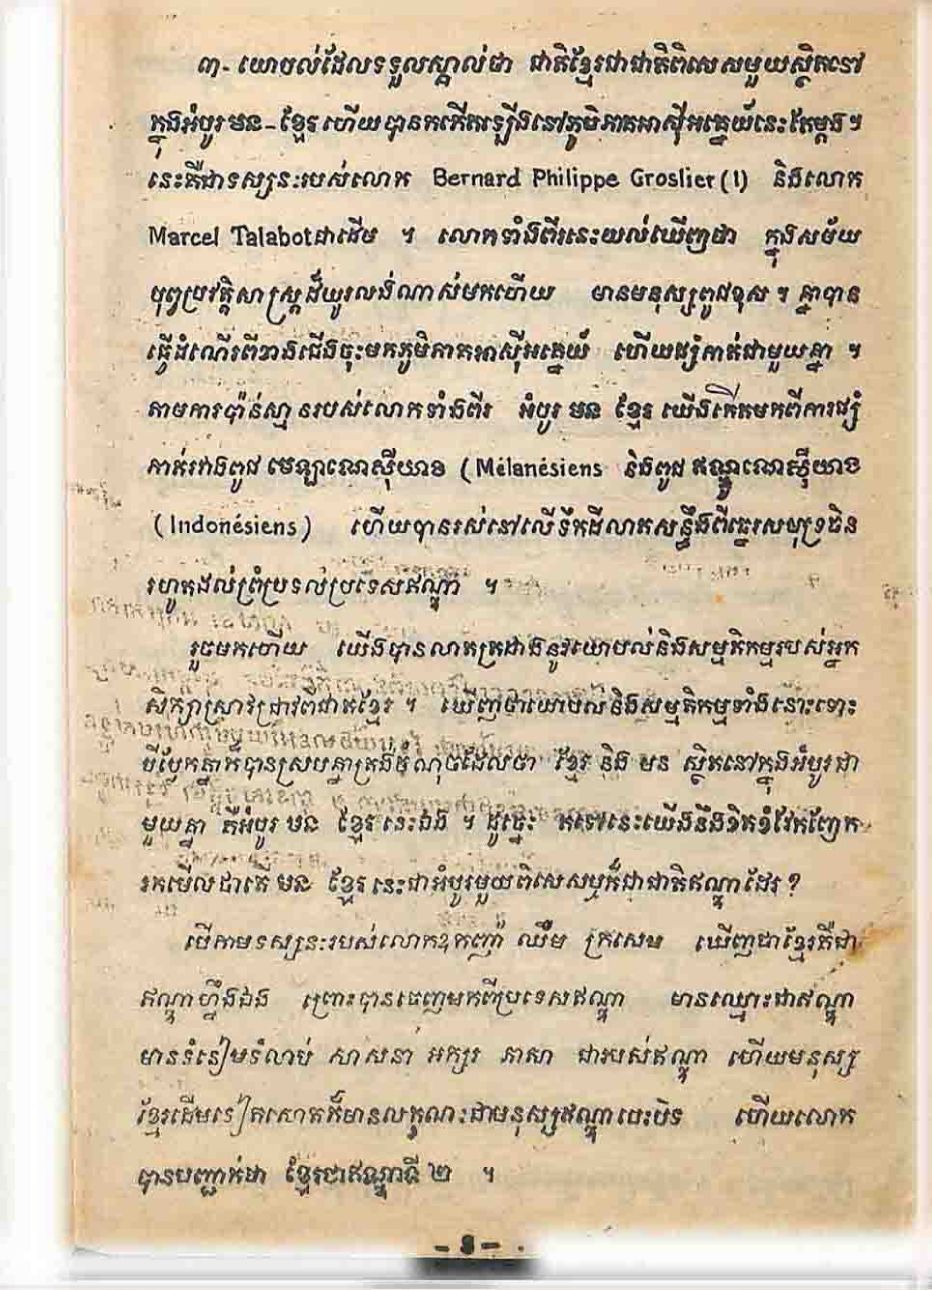 ៣- យោបល់ដែលទទួលស្គាល់ថា ជាតិខ្មែរជាជាតិពិសេសមួយស្ថិតនៅ
ក្នុងអំបូរ មន-ខ្មែរ ហើយបានកកើតឡើងនៅភូមិភាគអាស៊ីអគ្នេយ៍នេះតែម្តង ។
នេះគឺជាទស្សនៈរបស់លោក Bernard Philippe Groslier (1) និងលោក
Marcel Talabot ជាដើម ។ លោកទាំងពីរនេះយល់ឃើញថា ក្នុងសម័យ
បុព្វប្រវត្តិសាស្ត្រដ៏យូរលង់ណាស់មកហើយ មានមនុស្សពូជខុស ៗ គ្នាបាន
ធ្វើដំណើរពីខាងជើងចុះមកភូមិភាគអាស៊ីអគ្នេយ៍ ហើយផ្សំកាត់ជាមួយគ្នា ។
តាមការប៉ាន់ស្មានរបស់លោកទាំងពីរ អំបូរ មន ខ្មែរ យើងកើតមកពីការផ្សំ
កាត់រវាងពូជ មេឡាណេស៊ីយាន (Mélanésiens និងពូជ ឥណ្ឌូណេស៊ីយាន
(Indonésiens) ហើយបានរស់នៅលើទឹកដីលាតសន្ធឹងពីឆ្នេរសមុទ្រចិន
រហូតដល់ព្រំប្រទល់ប្រទេសឥណ្ឌា ។
រួចមកហើយ យើងបានលាតត្រដាងនូវយោបល់និងសម្មតិកម្មរបស់អ្នក
សិក្សាស្រាវជ្រាវពីជាតិខ្មែរ ។ ឃើញថាយោបល់និងសម្មតិកម្មទាំងនោះទោះ
បីប្លែកគ្នាក៏បានស្របគ្នាត្រង់ចំណុចដែលថា ខ្មែរ និង មន ស្ថិតនៅក្នុងអំបូរជា
មួយគ្នា គឺអំបូរ មន ខ្មែរ នេះឯង ។ ដូច្នេះ តទៅនេះយើងនឹងខិតខំវែកញែក
រកមើលថាតើ មន ខ្មែរ នេះជាអំបូរមួយពិសេសឬក៏ជាជាតិឥណ្ឌាដែរ ?
បើតាមទស្សនៈរបស់លោកឧកញ៉ា ឈឹម ក្រសេម ឃើញថាខ្មែរគឺជា
ឥណ្ឌាហ្នឹងឯង ព្រោះបានចេញមកពីប្រទេសឥណ្ឌា មានឈ្មោះជាឥណ្ឌា
មានទំនៀមទំលាប់ សាសនា អក្សរ ភាសា ជារបស់ឥណ្ឌា ហើយមនុស្ស
ខ្មែរដើមទៀតសោតក៏មានលក្ខណៈជាមនុស្សឥណ្ឌាបេះបិទ ហើយលោក
បានបញ្ជាក់ថា ខ្មែរជាឥណ្ឌាទី ២ ។